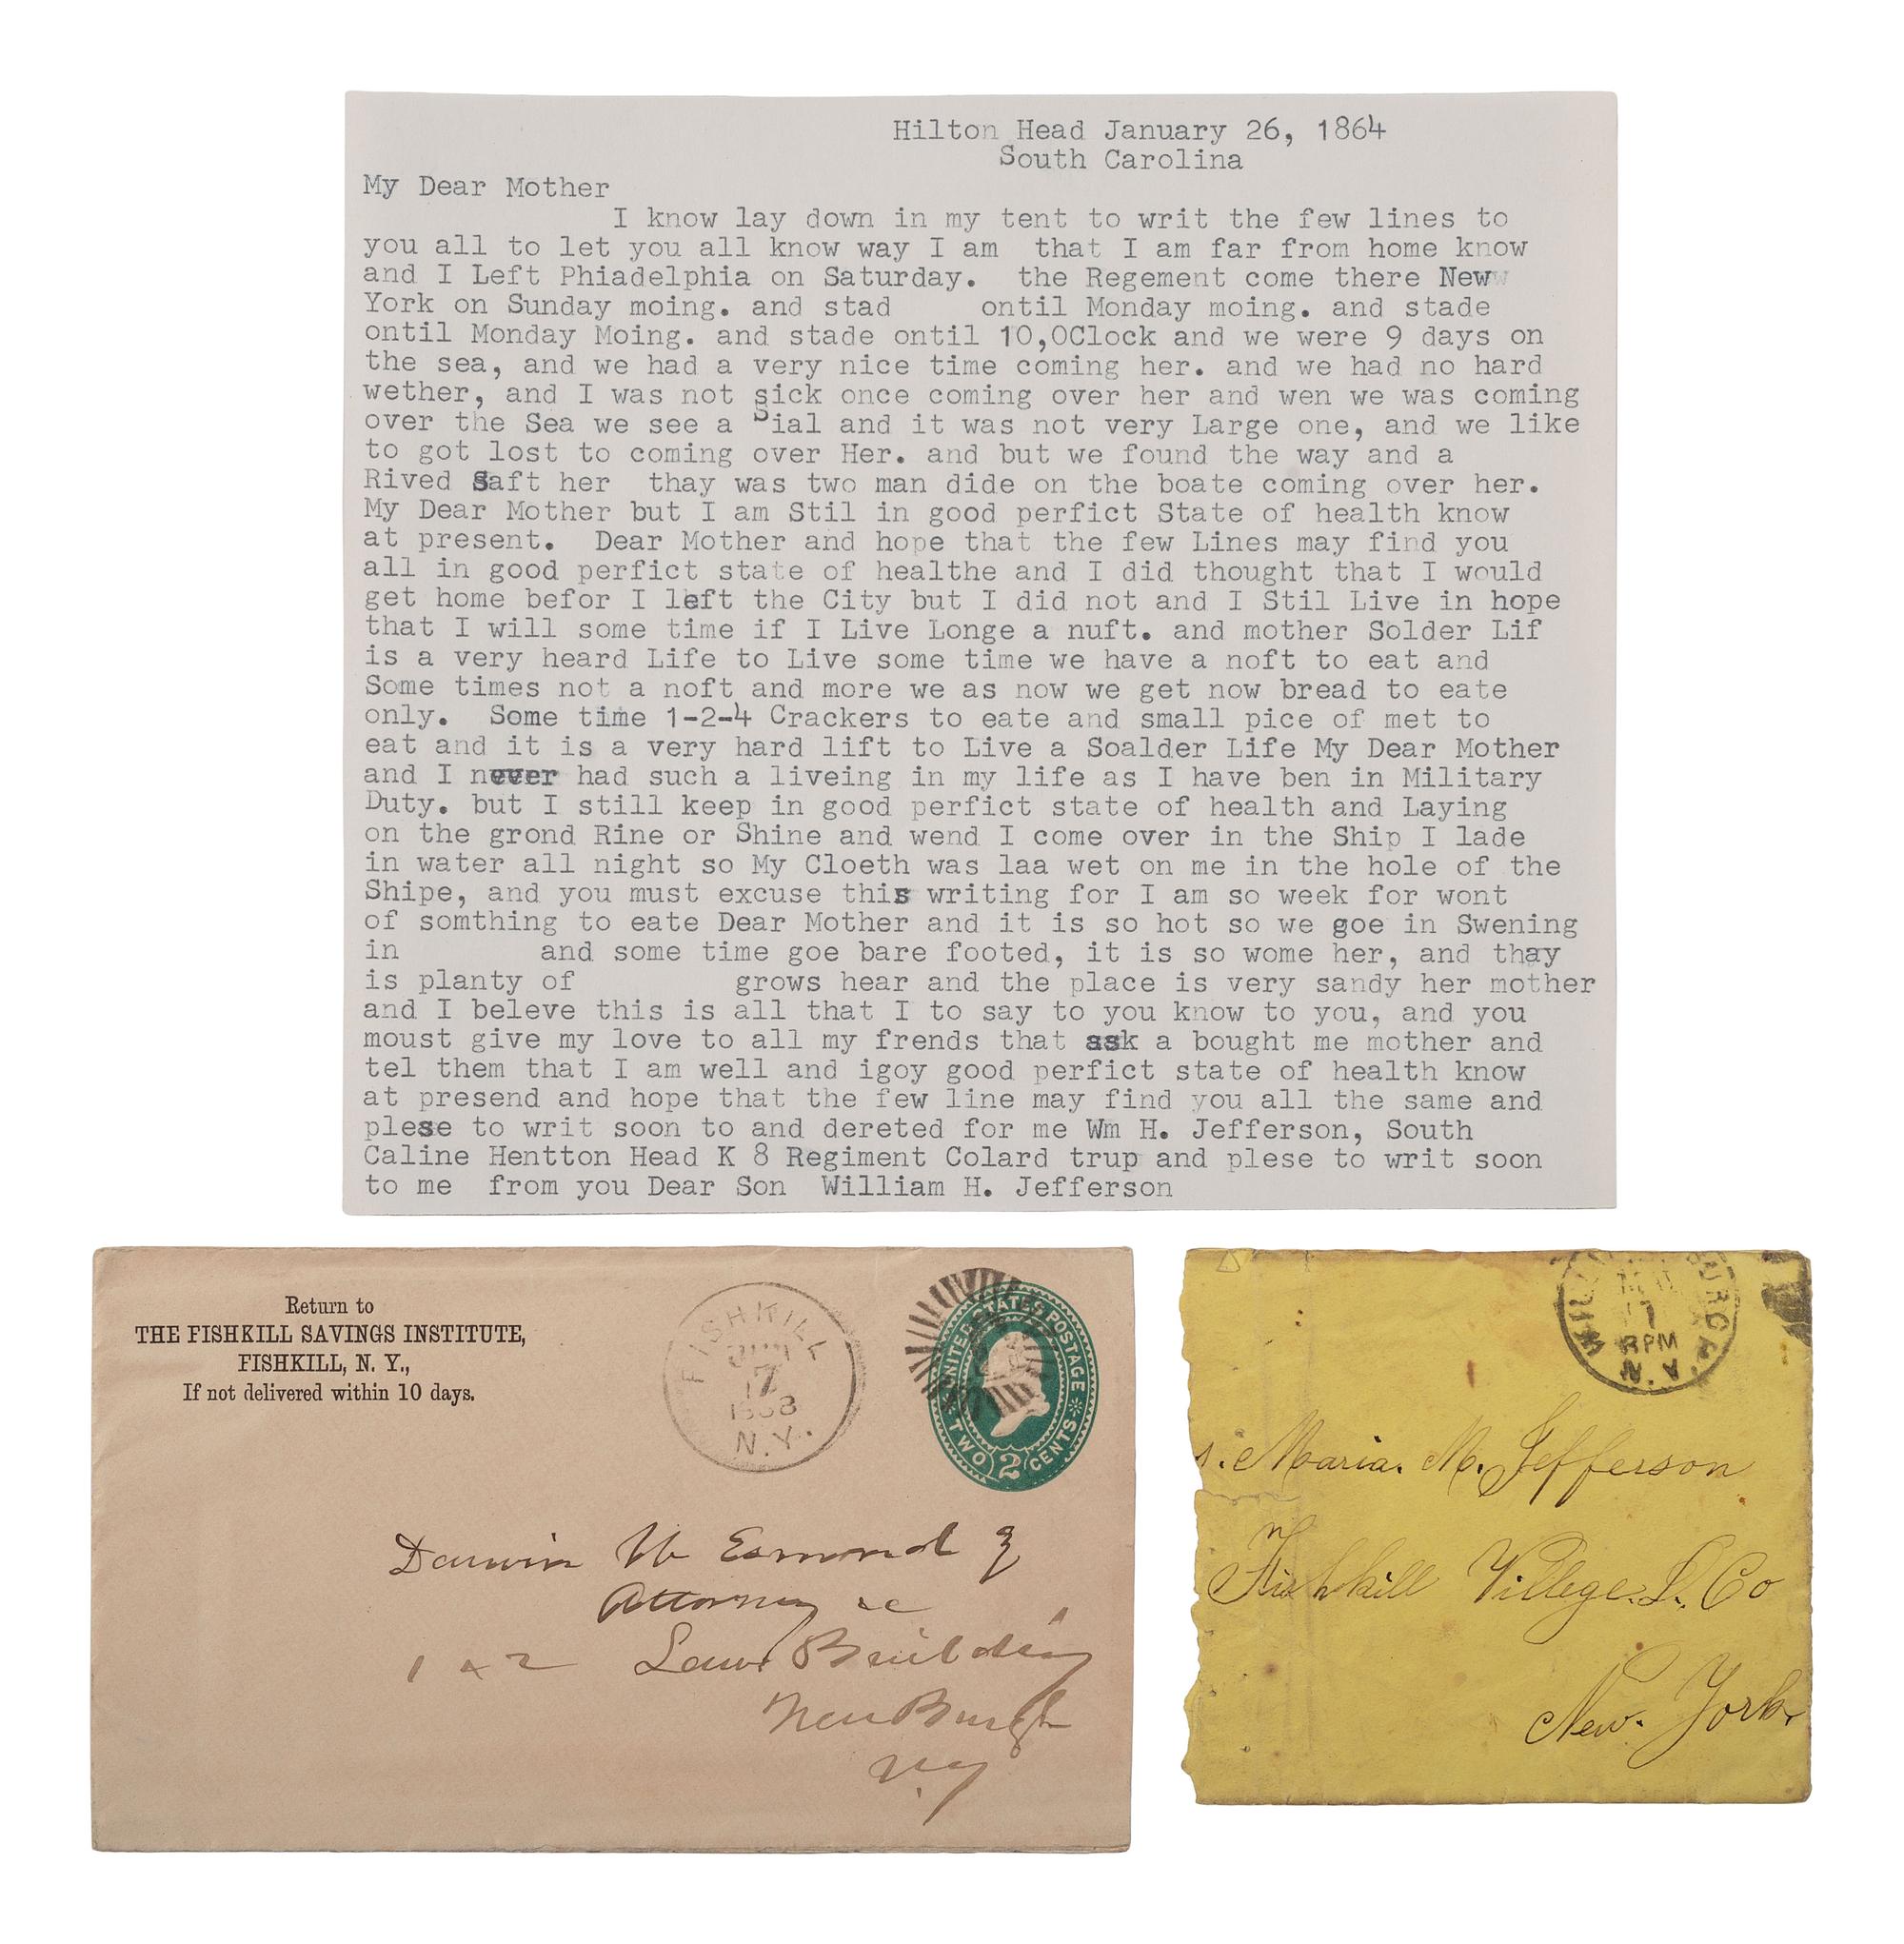 Hilton Head January 26, 1864
South Carolina
My Dear Mother
I know lay down in my tent to writ the few lines to
you all to let you all know way I am that I am far from home know
and I Left Phiadelphia on Saturday. the Regement come there New
York on Sunday moing. and stad ontil Monday moing. and stade
ontil Monday Moing. and stade ontil 10,OClock and we were 9 days on
the sea, and we had a very nice time coming her. and we had no hard
wether, and I was not sick once coming over her and wen we was coming
over the Sea we see a Sial and it was not very Large one, and we like
to got lost to coming over Her. and but we found the way and a
Rived Saft her thay was two man dide on the boate coming over her.
My Dear Mother but I am Stil in good perfict State of health know
at present. Dear Mother and hope that the few Lines may find you
all in good perfict state of healthe and I did thought that I would
get home befor I left the City but I did not and I Stil Live in hope
that I will some time if I Live Longe a nuft. and mother Solder Lif
is a very heard Life to Live some time we have a noft to eat and
Some times not a noft and more we as now we get now bread to eate
only. Some time 1-2-4 Crackers to eate and small pice of met to
eat and it is a very hard lift to Live a Soalder Life My Dear Mother
and I never had such a liveing in my life as I have ben in Military
Duty. but I still keep in good perfict state of health and Laying
on the grond Rine or Shine and wend I come over in the Ship I lade
in water all night so My Cloeth was laa wet on me in the hole of the
Shipe, and you must excuse this writing for I am so week for wont
of somthing to eate Dear Mother and it is so hot so we goe in Swening
in and some time goe bare footed, it is so wome her, and thay
is planty of grows hear and the place is very sandy her mother
and I beleve this is all that I to say to you know to you, and you
moust give my love to all my frends that ask a bought me mother and
tel them that I am well and igoy good perfict state of health know
at presend and hope that the few line may find you all the same and
plese to writ soon to and dereted for me Wm H. Jefferson, South
Caline Hentton Head K 8 Regiment Colard trup and plese to writ soon
to me from you Dear Son William H. Jefferson
Return to
THE FISHKILL SAVINGS INSTITUTE,
FISHKILL, N. Y.,
If not delivered within 10 days.
FISHKILL
17
N.Y.
UNITED STATES POSTAGE
TWO 2 CENTS
Darwin W Esmond
Attorney &c
1 & 2 Law Building
NewBurgh
N.Y
PM
N.Y.
Maria. M. Jefferson
Fishkill Villege. D. Co
New. York.